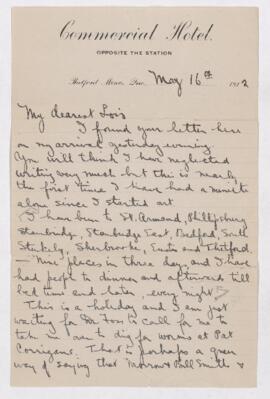 Commercial Hotel.
OPPOSITE THE STATION
Thetford Mines, Que. May 16th 1912
My dearest Lois
I found your letter here
on my arrival yesterday evening.
You will think I have neglected
writing very much but this is nearly
the first time I have had a minute
alone since I started out
I have been to St. Armand, Phillipsburg
Stanbridge, Stanbridge East, Bedford, South
Stukely, Sherbrooke, Eustis and Thetford.
— Nine places in three days, and I have
had people to dinner and afterward till
bed time and later, every night
This is a holiday and I am just
waiting for Mr Foss to call for me to
take me over to dig for worms at Pat
Corrigans. That is perhaps a queer
way of saying that Morrow & Bill Smith &